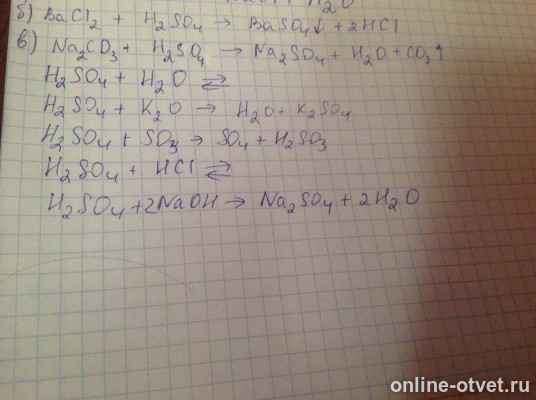 H₂O
б) BaCl₂ + H₂SO₄ → BaSO₄↓ + 2HCl
в) Na₂CO₃ + H₂SO₄ → Na₂SO₄ + H₂O + CO₂↑
H₂SO₄ + H₂O ⇄
H₂SO₄ + K₂O → H₂O + K₂SO₄
H₂SO₄ + SO₃ → SO₄ + H₂SO₃
H₂SO₄ + HCl ⇄
H₂SO₄ + 2NaOH → Na₂SO₄ + 2H₂O
online-otvet.ru